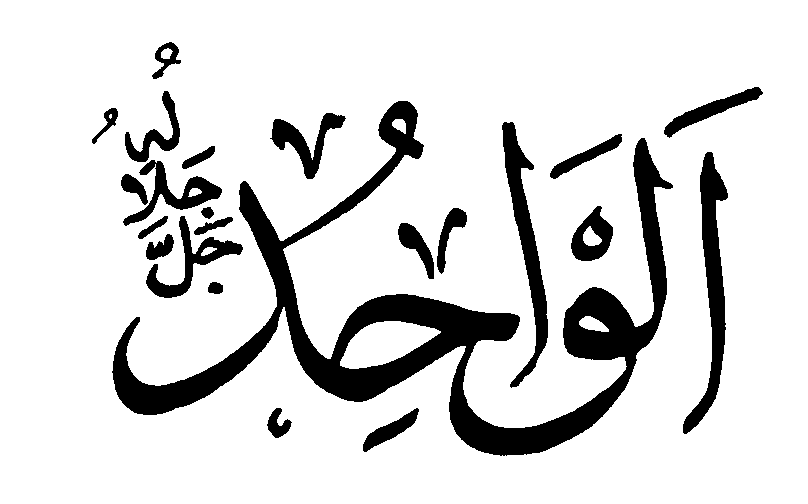 اَلْوَاحِدُ
جَلَّ جَلَالُهُ